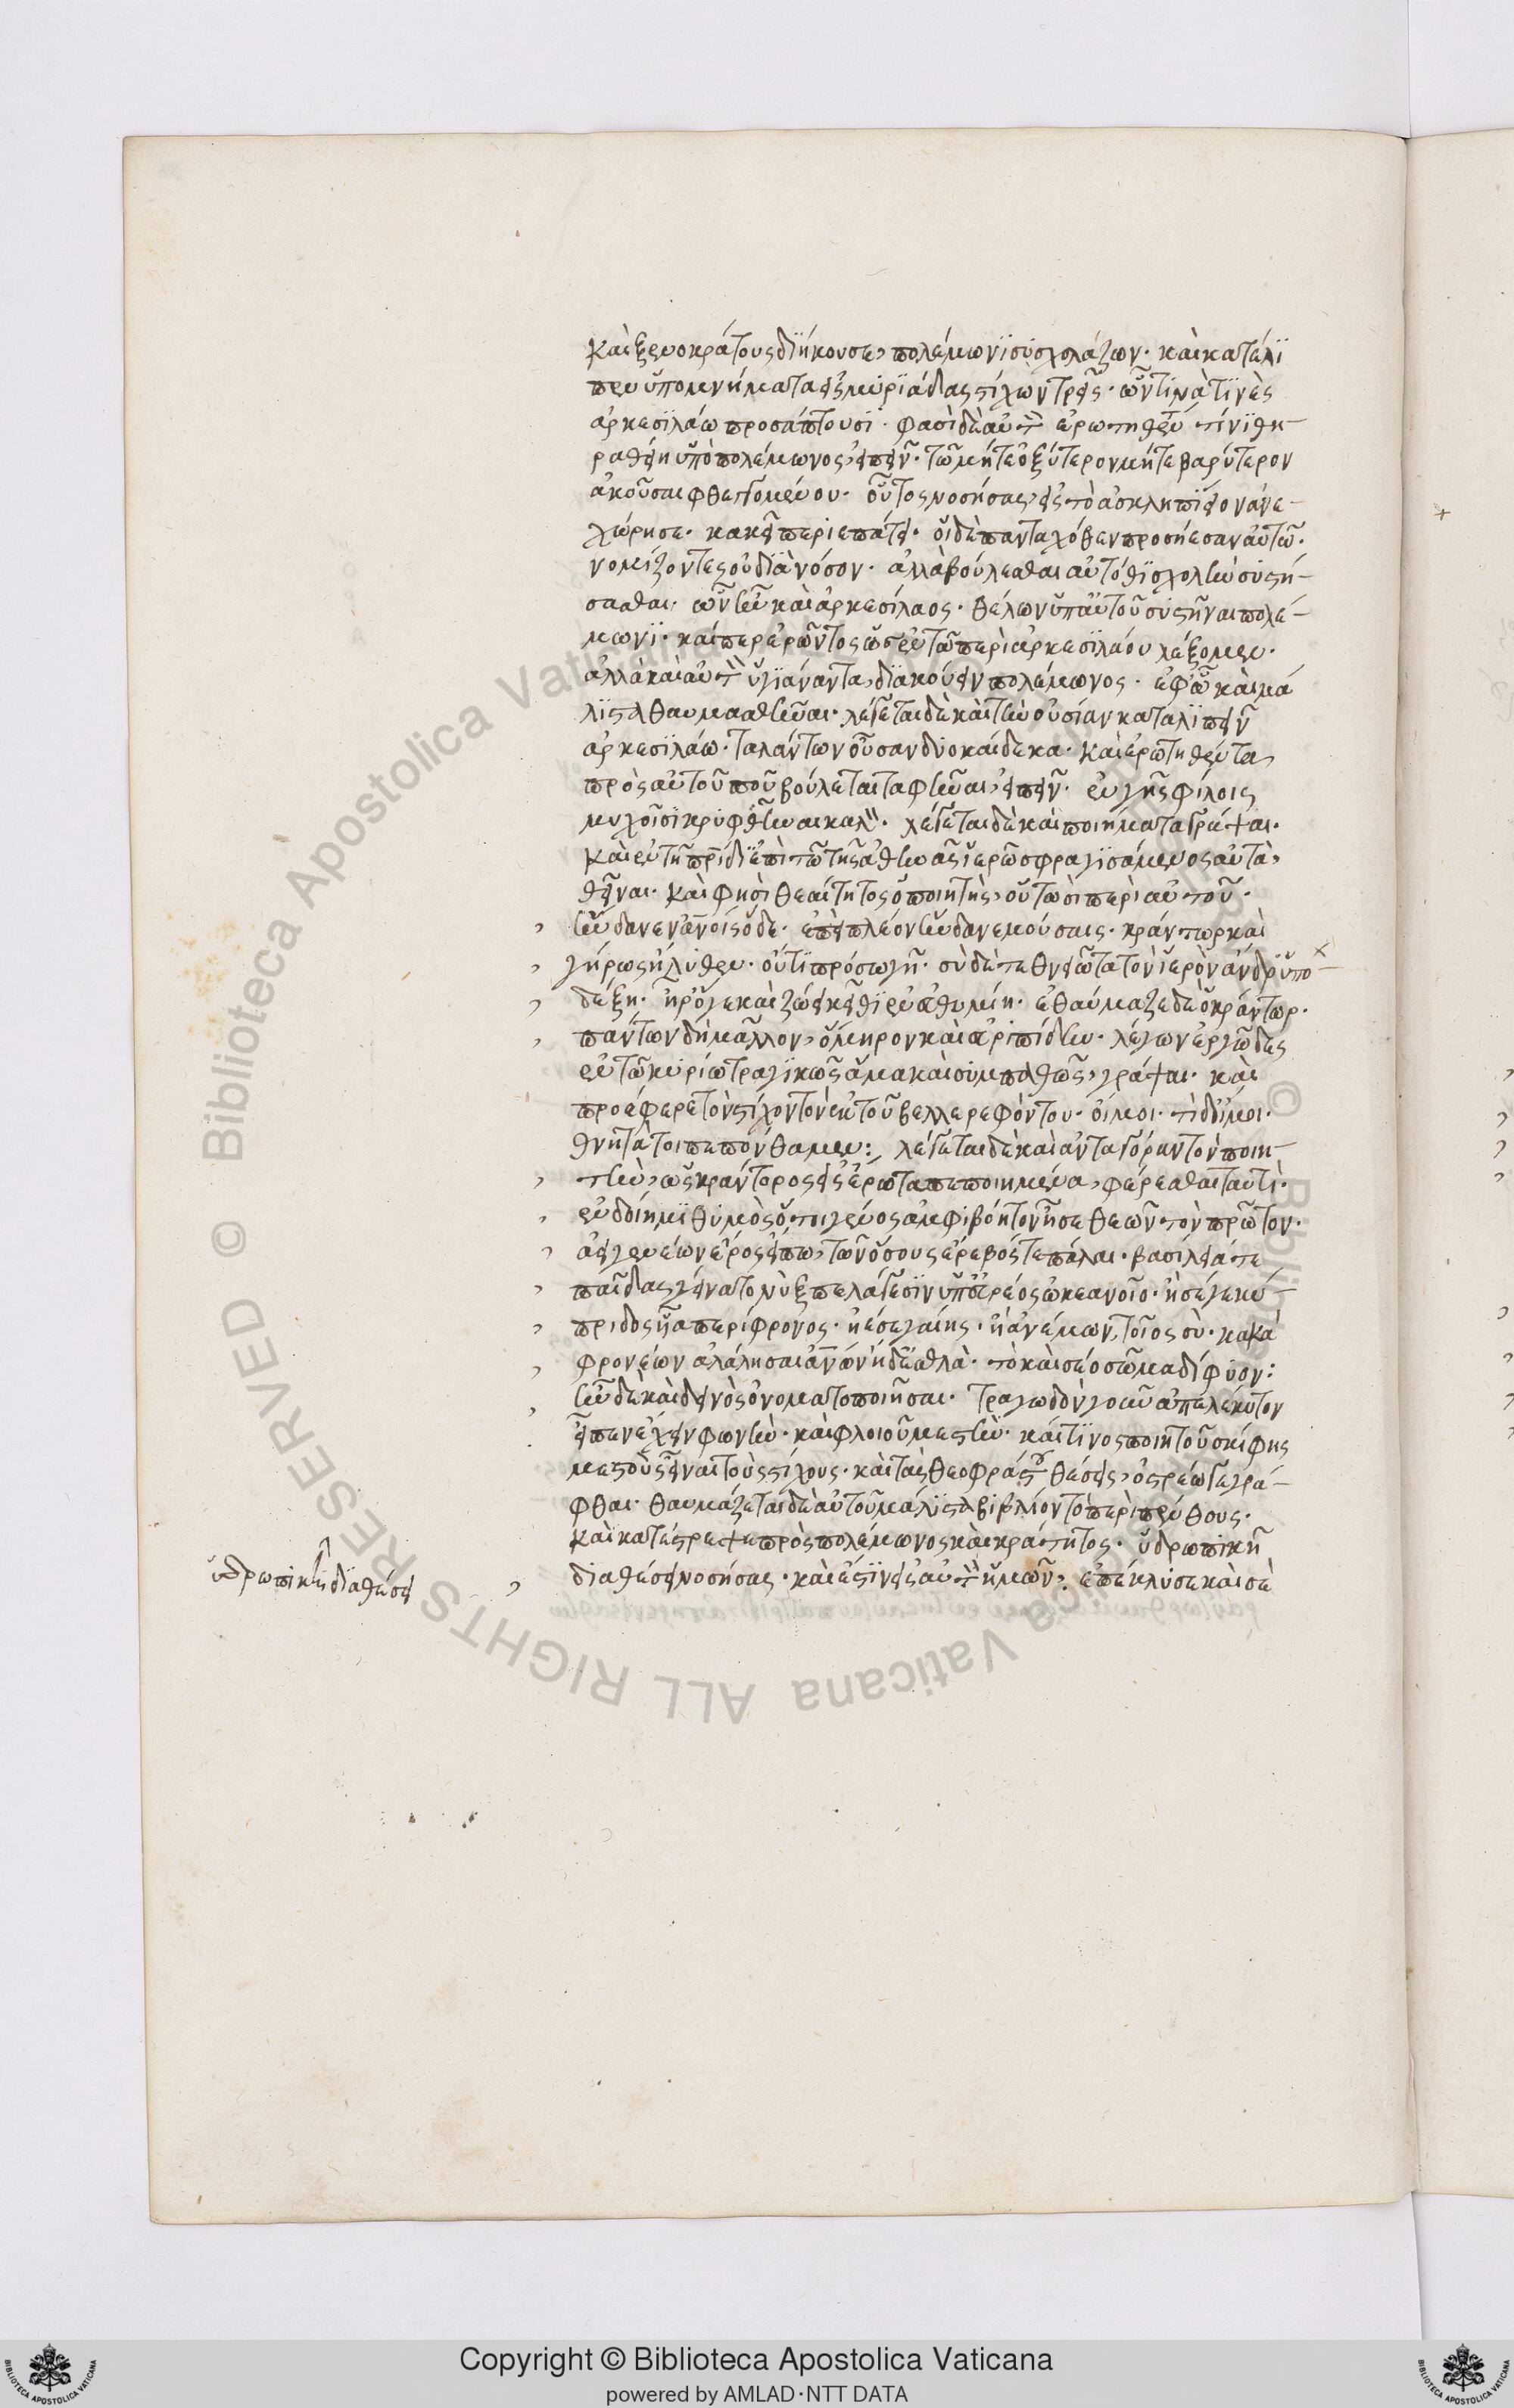 καὶ ξενοκράτους διήκουσε, πολέμωνϊ συσχολάζων· καὶ κατέλϊ
πεν ὑπομνήματα εἰς μυρϊάδας στίχων τρεῖς· ὧν τινὰ τϊνὲς
ἀρκεσϊλάω προσάπτουσϊ· φασὶ δὲ αὐτὸν ἐρωτηθέντα τίνϊ θη-
ραθείη ὑπὸ πολέμωνος, εἰπεῖν· τῶ μήτε ὀξύτερον μήτε βαρύτερον
ἀκοῦσαι φθεγγομένου· οὗτος νοσήσας, εἰς τὸ ἀσκληπϊεῖον ἀνε-
χώρησε· κακεῖ περιεπάτει· οἱ δὲ πανταχόθεν προσήεσαν αὐτῶ·
νομίζοντες οὐ δϊὰ νόσον· ἀλλὰ βούλεσθαι αὐτόθϊ σχολὴν συστή-
σασθαι· ὧν ἦν καὶ ἀρκεσίλαος· θέλων ὑπ' αὐτοῦ συστῆναι πολέ-
μωνϊ· καίπερ ἐρῶντος ὡς ἐν τῶ περὶ ἀρκεσϊλάου λέξομεν·
ἀλλὰ καὶ αὐτὸν ὑγϊάναντα, δϊακούειν πολέμωνος· ἐφ' ὧ καὶ μά
λϊστα θαυμασθῆναι· λέγεται δὲ καὶ τὴν οὐσίαν καταλϊπεῖν
ἀρκεσϊλάω· ταλάντων οὖσαν δυοκαίδεκα· καὶ ἐρωτηθέντα,
πρὸς αὐτοῦ ποῦ βούλεται ταφῆναι, εἰπεῖν· ἐν γῆς φίλοις
μυχοῖσϊ κρυφθῆναι καλόν· λέγεται δὲ καὶ ποιήματα γράψαι·
καὶ ἐν τῆ πρϊδϊ ἐπὶ τῶ τῆς ἀθηνᾶς ἱερῶ σφραγϊσάμενος αὐτὰ,
θεῖναι· καὶ φησὶ θεαίτητος ὁ ποιητὴς, οὑτωσὶ περὶ αὐτοῦ·
ἧνδανεν ἀνοις ὅδε· ἐπὶ πλέον ἧνδανε μούσαις· κράντωρ καὶ
γήρως ἤλυθεν· οὔτϊ πρόσω γῆ· σὺ δὲ τεθνειῶτα τὸν ἱερὸν ἄνδρ' ὑπο-
δέξη· ἦ ῥ' ὅγε καὶ ζώει κεῖθϊ ἐν εὐθυμίη· ἐθαύμαζε δὲ ὁ κράντωρ·
πάντων δὴ μᾶλλον, ὅμηρον καὶ εὐριπίδην· λέγων ἐργῶδες
ἐν τῶ κυρίω τραγϊκῶς ἅμα καὶ συμπαθῶς, γράψαι· καὶ
προέφερε τὸν στίχον τὸν ἐκ τοῦ βελλερεφόντου· οἴμοι· τὶ δ' οἴμοι·
θνητά τοι πεπόνθαμεν: λέγεται δὲ καὶ ἀνταγόραν τὸν ποιη-
τὴν, ὡς κράντορος εἰς ἔρωτα πεποιημένα, φέρεσθαι ταυτί·
ἐν δοιῆ μϊ θυμὸς ὅ τοι γένος ἀμφιβόητον ἦσε θεῶν τὸν πρῶτον·
ἀειγενέων ἔρος εἴπω, τῶν ὅσους ἔρεβός τε πάλαι· βασίλειά τε
παῖδας γείνατο νὺξ πελάγεσϊν ὑπ' εὐρέος ὠκεανοῖο· ἢ σέ γε κύ-
πριδος υἷα περίφρονος· ἠὲ σε γαίης· ἢ ἀνέμων, τοῖος σὺ· κακὰ
φρονέων ἀλάλησαι ἀνων ἠδ' ἐσθλὰ· τὸ καὶ σέο σῶμα δίφυον:
ἦν δὲ καὶ δεινὸς ὀνοματοποιῆσαι· τραγωδὸν γοῦν ἀπελέκητον
εἶπεν ἔχειν φωνὴν· καὶ φλοιοῦ μεστὴν· καί τϊνος ποιητοῦ σκίφης
μεστοὺς εἶναι τοὺς στίχους· καὶ τὰς θεοφράστου θέσεις, ὀστρέω γεγρά-
φθαι· θαυμάζεται δὲ αὐτοῦ μάλϊστα βιβλίον τὸ περὶ πένθους·
καὶ κατέστρεψε πρὸς πολέμωνος καὶ κράτητος· ὑδρωπικῆ
διαθέσει νοσήσας· καὶ ἔστϊν εἰς αὐτὸν ἡμῶν· ἐπέκλυσε καὶ σὲ
ὑδρωπικὴ δϊαθέσει
Copyright © Biblioteca Apostolica Vaticana
powered by AMLAD·NTT DATA
© Biblioteca Apostolica Vaticana ALL RIGHTS RESERVED
BIBLIOTECA APOSTOLICA VATICANA
BIBLIOTECA APOSTOLICA VATICANA